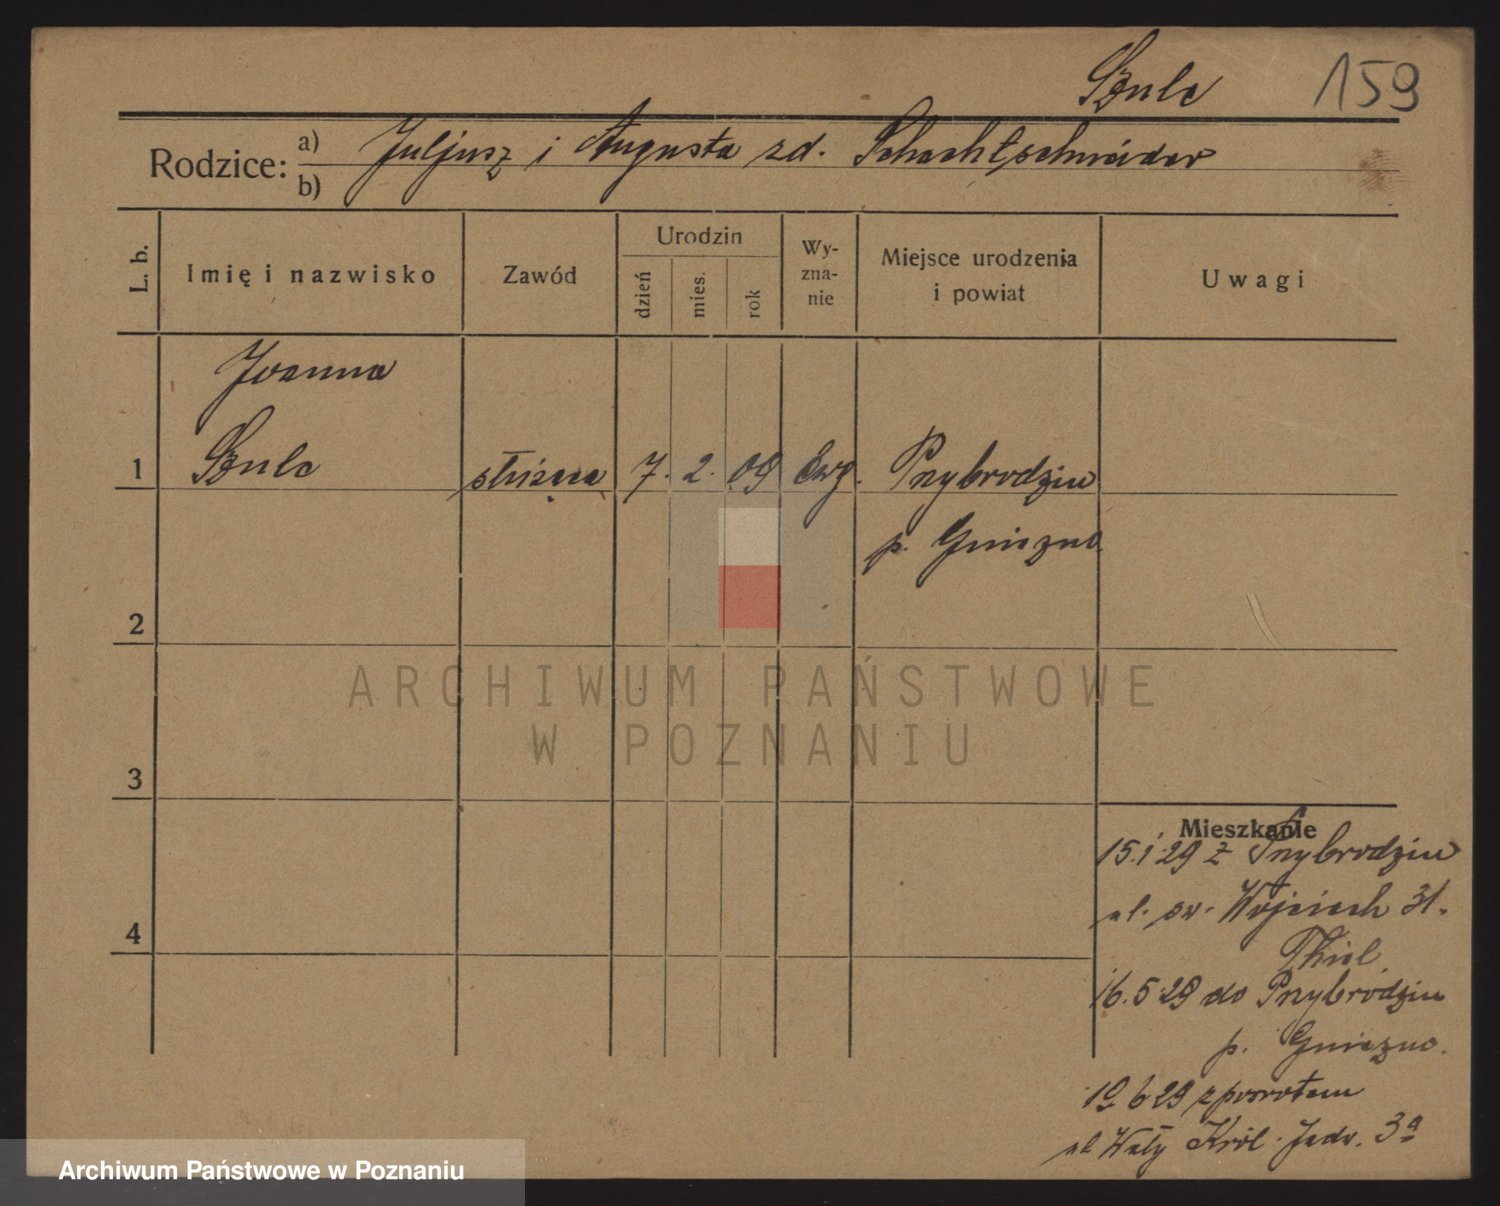 Szulc 159
Rodzice: a) Juljusz i Augusta zd. Schachtschneider
b)
L. b. Imię i nazwisko Zawód Urodzin dzień mies. rok Wy-zna-nie Miejsce urodzenia i powiat Uwagi
Joanna
1 Szulc służąca 7. 2. 09 Ewg. Przybrodzin
p. Gniezno
2
ARCHIWUM PAŃSTWOWE
W POZNANIU
3
Mieszkanie
15.1.29 z Przybrodzin
ul. św. Wojciech 31.
4
Thiel
16.5.29 do Przybrodzin
p. Gniezno.
19 6 29 z powrotem
ul Wały Król. Jadw. 3a
Archiwum Państwowe w Poznaniu